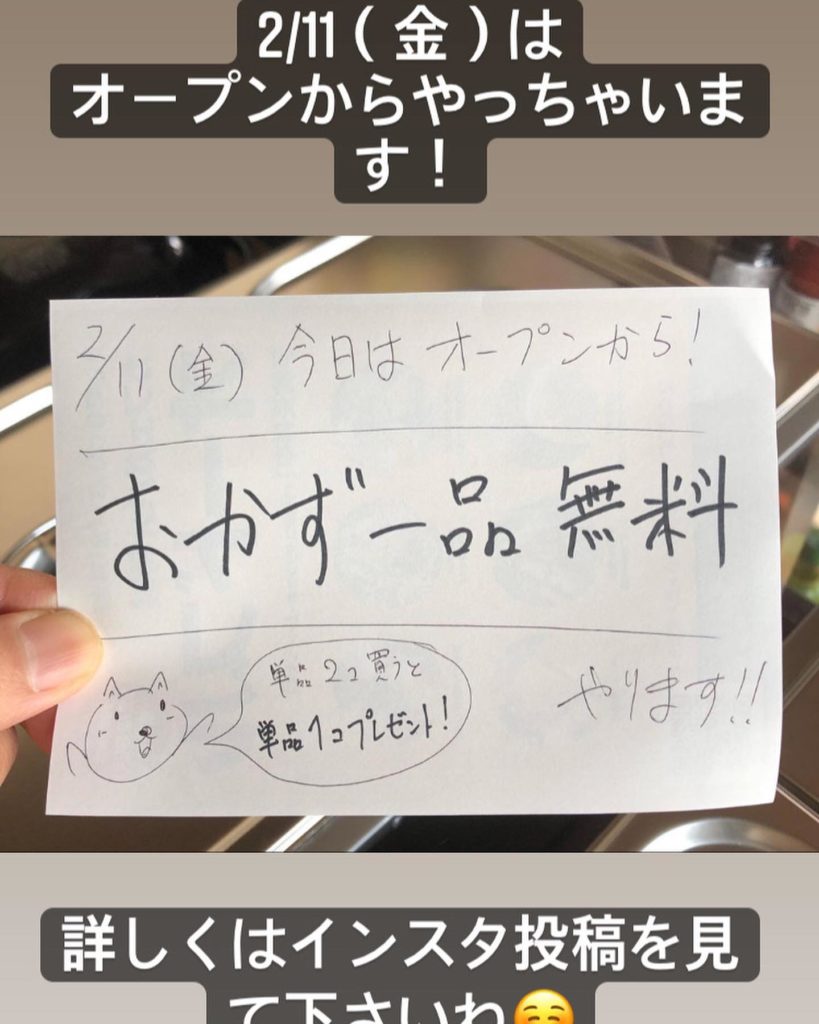 2/11（金）は
オープンからやっちゃいま
す！
2/11(金) 今日はオープンから!
おかず一品 無料
単品2コ買うと
単品1コプレゼント!
やります!!
詳しくはインスタ投稿を見
て下さいね😊